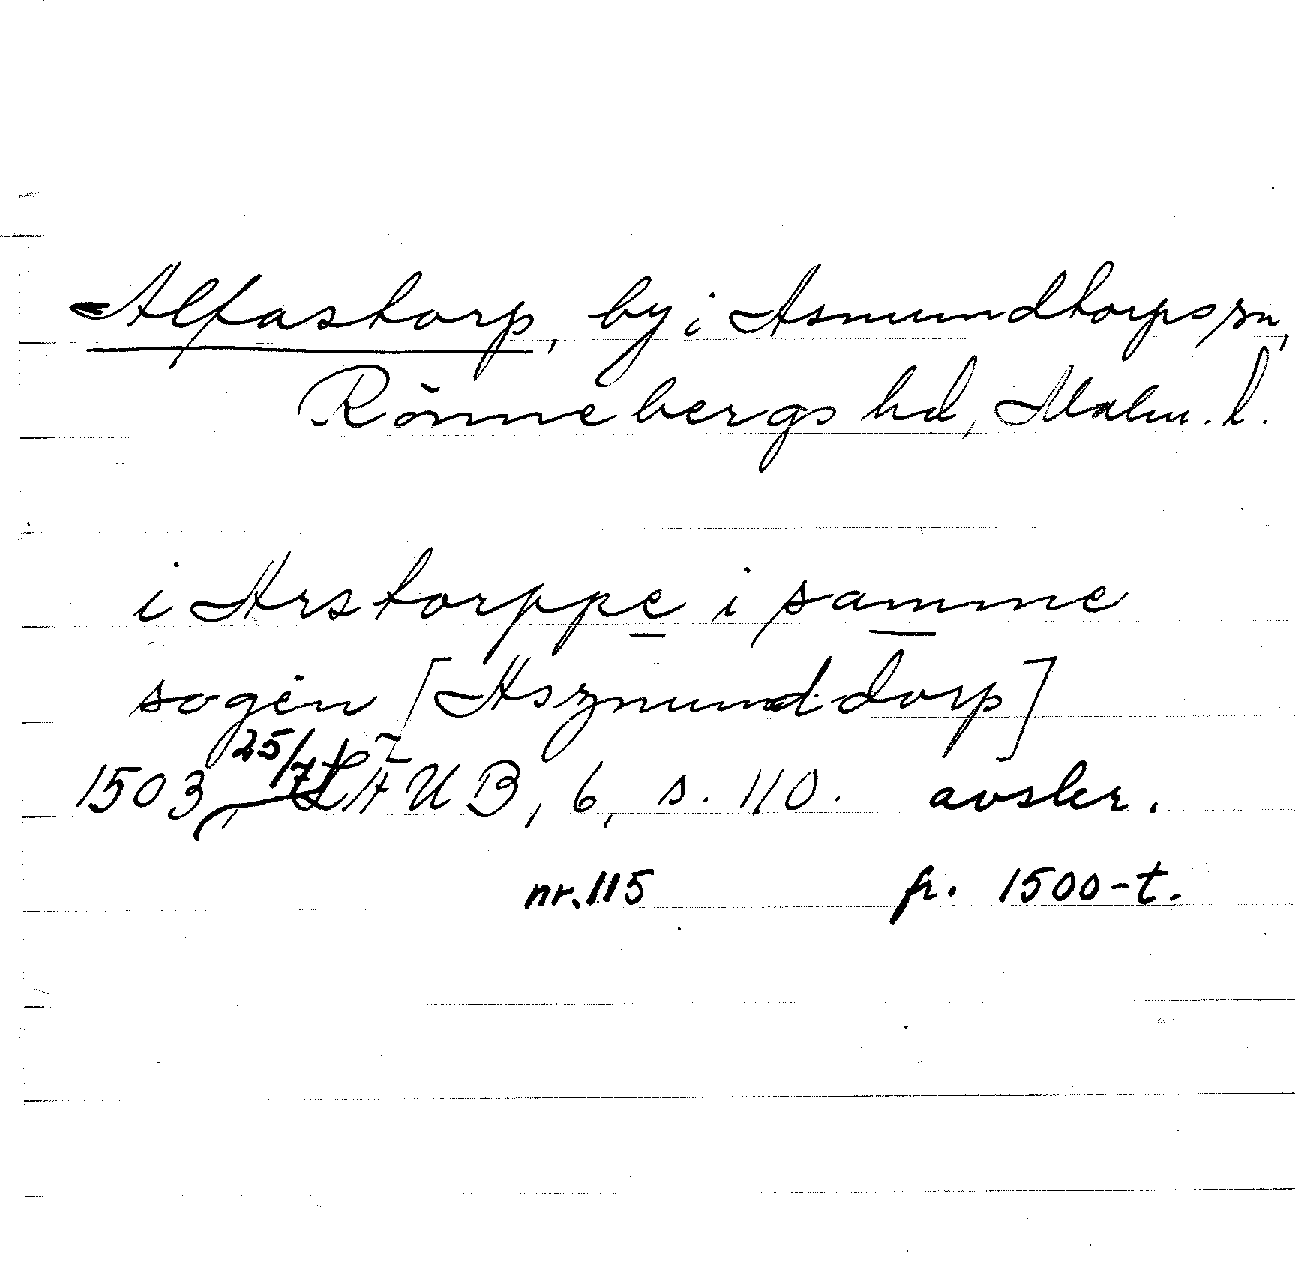 Alfastorp, by i Asmundtorps sn,
Rönnebergs hd, Malm. l.
i Arstorppe i samme
sogen [Aszmunddorp]
1503 25/7 LÄUB, 6, s. 110. avskr.
nr. 115 fr. 1500-t.